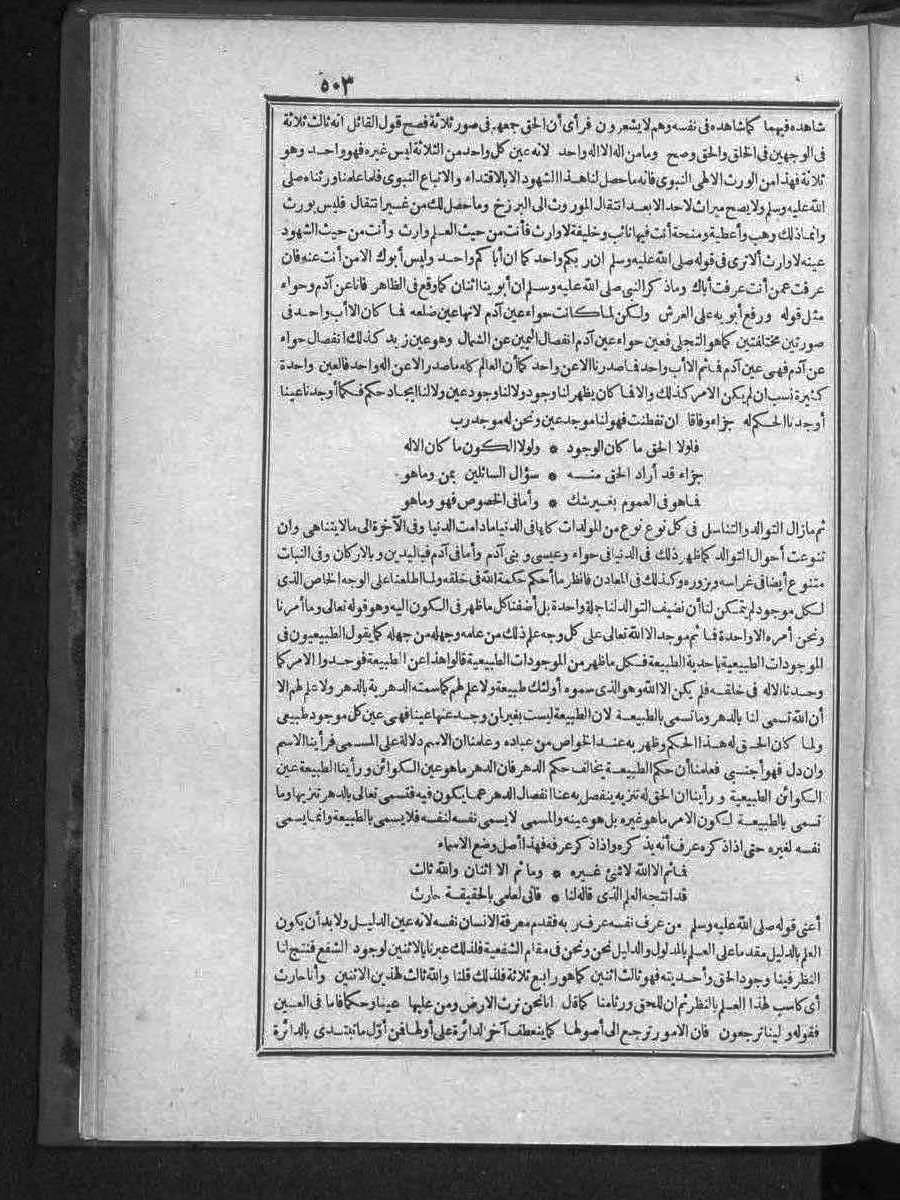 ٥٠٣
شاهده فيهما كما شاهده فى نفسه وهم لا يشعرون فرأى أن الحق جمعهم فى صور ثلاثة فصح قول القائل انه ثالث ثلاثة
فى الوجهين فى الخلق والحق وصح وما من اله الا اله واحد لانه عين كل واحد من الثلاثة ليس غيره فهو واحد وهو
ثلاثة فهذا من الورث الالهى النبوى فانه ما حصل لنا هذا الشهود الا بالاقتداء والاتباع النبوى فلما علمنا ورثناه صلى
الله عليه وسلم ولا يصح ميراث لاحد الا بعد انتقال الموروث الى البرزخ وما حصل لك من غير انتقال فليس بورث
وانما ذلك وهب وأعطية ومنحة أنت فيها نائب وخليفة لا وارث فأنت من حيث العلم وارث وأنت من حيث الشهود
عينه لا وارث ألا ترى فى قوله صلى الله عليه وسلم ان ربكم واحد كما ان أباكم واحد وليس أبوك الا من أنت عنه فان
عرفت عمن أنت عرفت أباك وما ذكر النبى صلى الله عليه وسلم ان أبوينا اثنان كما وقع فى الظاهر فانا عن آدم وحواء
مثل قوله ورفع أبويه على العرش ولكن لما كانت حواء عين آدم لانها عين ضلعه فما كان الا أب واحد فى
صورتين مختلفتين كما هو التجلى فعين حواء عين آدم انفصال اليمين عن الشمال وهو عين زيد كذلك انفصال حواء
عن آدم فهى عين آدم فما ثم الا أب واحد فما صدرنا الا عن واحد كما أن العالم كله ما صدر الا عن اله واحد فالعين واحدة
كثيرة نسب ان لم يكن الامر كذلك والا فما كان يظهر لنا وجود ولا لنا وجود عين ولا لنا ايجاد حكم فكما أوجدنا عينا
أوجدنا الحكم له جزاء وفاقا ان تفطنت فهو لنا موجد عين ونحن له موجد رب
فلولا الحق ما كان الوجود * ولولا الكون ما كان الاله
جزاء قد أراد الحق منه * سؤال السائلين بمن وما هو
فما هو فى العموم بغير شك * وأما فى الخصوص فهو وما هو
ثم ما زال التوالد والتناسل فى كل نوع نوع من المولدات كلها فى الدنيا مادامت الدنيا وفى الآخرة الى ما لا يتناهى وان
تنوعت أحوال التوالد كما ظهر ذلك فى الدنيا فى حواء وعيسى وبنى آدم وأما فى آدم فباليدين وبالاركان وفى النبات
متنوع أيضا فى غراسه وبزوره وكذلك فى المعادن فانظر ما أحكم حكمة الله فى خلقه ولما اطلعنا على الوجه الخاص الذى
لكل موجود لم يتمكن لنا أن نضيف التوالد لنا جملة واحدة بل أضفنا كل ما ظهر فى الكون اليه وهو قوله تعالى وما أمرنا
ونحن أمره الا واحدة فما ثم موجد الا الله تعالى على كل وجه علم ذلك من علمه وجهله من جهله كما يقول الطبيعيون فى
الموجودات الطبيعية باحدية الطبيعة فكل ما ظهر من الموجودات الطبيعية قالوا هذا عن الطبيعة فوحدوا الامر كما
وحدنا الاله فى خلقه فلم يكن الا الله وهو الذى سموه أولئك طبيعة ولا علم لهم كما سمته الدهرية بالدهر ولا علم لهم الا
أن الله تسمى لنا بالدهر وما تسمى بالطبيعة لان الطبيعة ليست بغير لمن وجد عنها عينا فهى عين كل موجود طبيعى
ولما كان الحق له هذا الحكم وظهر به عند الخواص من عباده وعلمنا ان الاسم دلالة على المسمى فرأينا الاسم
وان دل فهو أجنبى فعلمنا أن حكم الطبيعة يخالف حكم الدهر فان الدهر ما هو عين الكوائن ورأينا الطبيعة عين
الكوائن الطبيعية ورأينا ان الحق له تنزيه ينفصل به عنا انفصال الدهر عما يكون فيه فتسمى تعالى بالدهر تنزيها وما
تسمى بالطبيعة لكون الامر ما هو غيره بل هو عينه والمسمى لا يسمى نفسه لنفسه فلا يسمى بالطبيعة وانما يسمى
نفسه لغيره حتى اذا ذكره عرف أنه يذكره واذا ذكر عرفه فهذا أصل وضع الاسماء
فما ثم الا الله لا شئ غيره * وما ثم الا اثنان والله ثالث
قد انتجه العلم الذى قاله لنا * فانى لعلمى بالحقيقة حارث
أعنى قوله صلى الله عليه وسلم من عرف نفسه عرف ربه فقدم معرفة الانسان نفسه لانه عين الدليل ولا بد أن يكون
العلم بالدليل مقدما على العلم بالمدلول والدليل نحن ونحن فى مقام الشفعية فلذلك عبرنا بالاثنين لوجود الشفع فنتج لنا
النظر فينا وجود الحق وأحديته فهو ثالث اثنين كما هو رابع ثلاثة فلذلك قلنا والله ثالث لهذين الاثنين وأنا حارث
أى كاسب لهذا العلم بالنظر ثم ان للحق ورثا منا كما قال انا نحن نرث الارض ومن عليها عينا وحكما فاما فى العين
فقوله والينا ترجعون فان الامور ترجع الى أصولها كما ينعطف آخر الدائرة على أولها فمن أول ما تبتدى بالدائرة